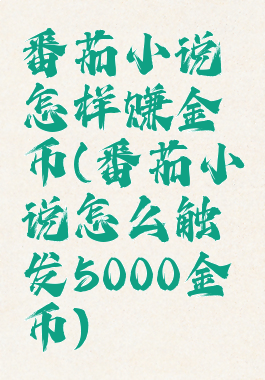 番茄小说
怎样赚金
币(番茄小
说怎么触
发5000金
币)